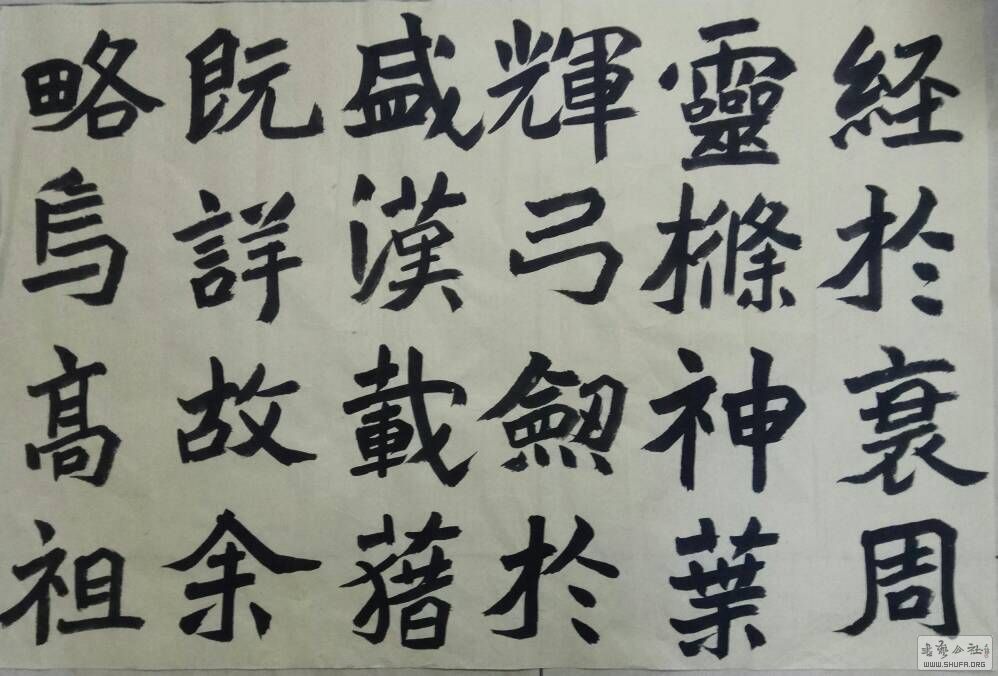 経於衰周
靈樤神葉
輝弓劒於
盛漢載藉
既詳故余
略焉高祖
书艺公社
WWW.SHUFA.ORG